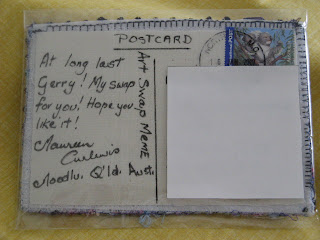 POSTCARD
At long last
Gerry! My swap
for you! Hope you
like it!
Maureen
Curlewis
Q'ld. Aust.
Art Swap Meme